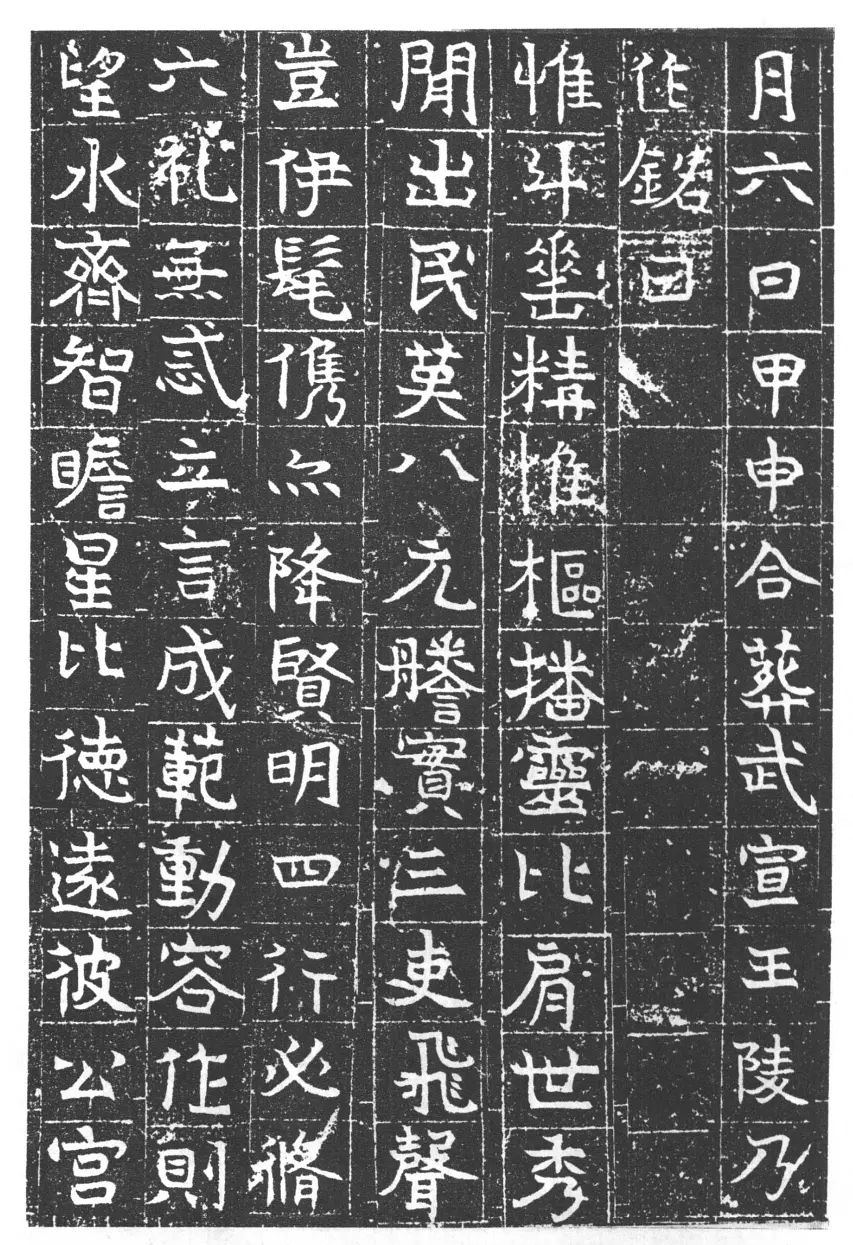 月六日甲申合葬武宣王陵乃
作銘曰
惟斗垂精惟樞播靈比肩世秀
聞出民英八元謄實三吏飛聲
豈伊髦儁尒降賢明四行必脩
六礼無忒立言成範動容作則
望水齊智瞻星比德遠彼公宮